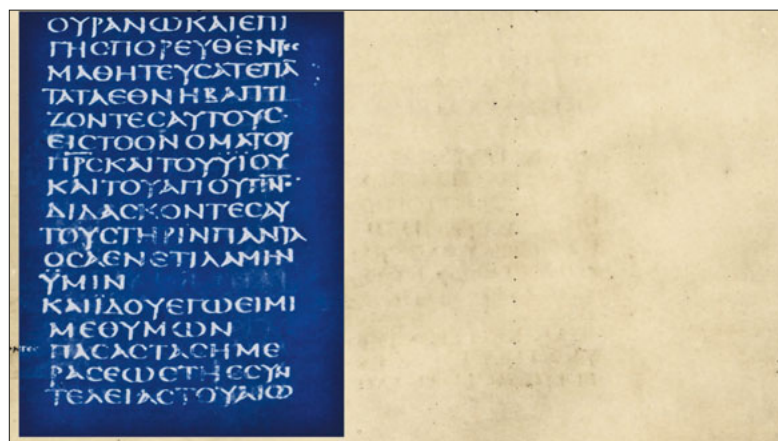 ΟΥΡΑΝΩΚΑΙΕΠΙ
ΓΗϹΠΟΡΕΥΘΕΝΤεϲ
ΜΑΘΗΤΕΥϹΑΤΕΠΑ̅
ΤΑΤΑΕΘΝΗΒΑΠΤΙ
ΖΟΝΤΕϹΑΥΤΟΥϹ·
ΕΙϹΤΟΟΝΟΜΑΤΟΥ
Π̅Ρ̅Ϲ̅ΚΑΙΤΟΥΥΙΟΥ
ΚΑΙΤΟΥΑΓΙΟΥΠ̅Ν̅Ϲ̅·
ΔΙΔΑϹΚΟΝΤΕϹΑΥ
ΤΟΥϹΤΗΡΙΝΠΑΝΤΑ
ΟϹΑΕΝΕΤΙΛΑΜΗΝ
ΫΜΙΝ
ΚΑΙΪΔΟΥΕΓΩΕΙΜΙ
ΜΕΘΥΜΩΝ
ΠΑϹΑϹΤΑϹΗΜΕ
ΡΑϹΕΩϹΤΗϹϹΥΝ
ΤΕΛΕΙΑϹΤΟΥΑΙΩ